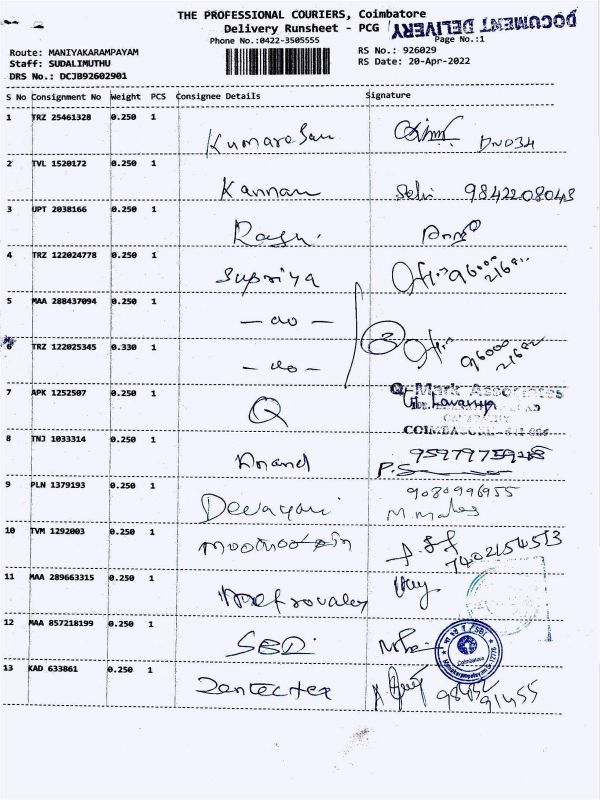 THE PROFESSIONAL COURIERS, Coimbatore
Delivery Runsheet - PCG
DOCUMENT DELIVERY
Phone No.:0422-3505555
Page No.:1
Route: MANIYAKARAMPAYAM
RS No.: 926029
Staff: SUDALIMUTHU
RS Date: 20-Apr-2022
DRS No.: DCJB92602901
S No Consignment No Weight PCS Consignee Details Signature
1 TRZ 25461328 0.250 1 Kumaresan DN034
2 TVL 1520172 0.250 1 Kannan Selvi 9842208043
3 UPT 2038166 0.250 1 Raghu.
4 TRZ 122024778 0.250 1 Supriya 96000
5 MAA 288437094 0.250 1 — do —
3
6 TRZ 122025345 0.330 1 — do — 96000
21682
7 APK 1252507 0.250 1 Q Q-Mark Associates
Lavanya
COIMBATORE
8 TNJ 1033314 0.250 1 Anand
P.S
9 PLN 1379193 0.250 1 Devayani 9080996955
10 TVM 1292003 0.250 1 7402154513
11 MAA 289663315 0.250 1
12 MAA 857218199 0.250 1 SBI
SBI
Coimbatore
13 KAD 633861 0.250 1 Zentectex 98432
91455